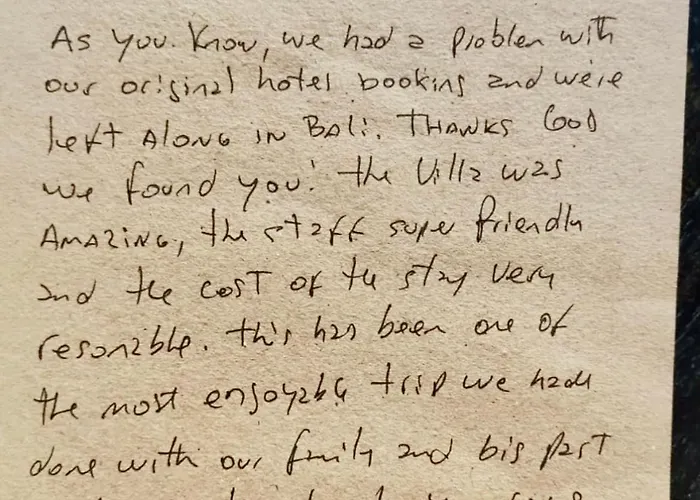 As you. Know, we had a problem with
our original hotel booking and we're
left ALONG IN BALI. THANKS GOD
we found you! the Villa was
AMAZING, the staff super friendly
and the cost of the stay very
resonable. this has been one of
the most enjoyable trip we have
done with our family and big part